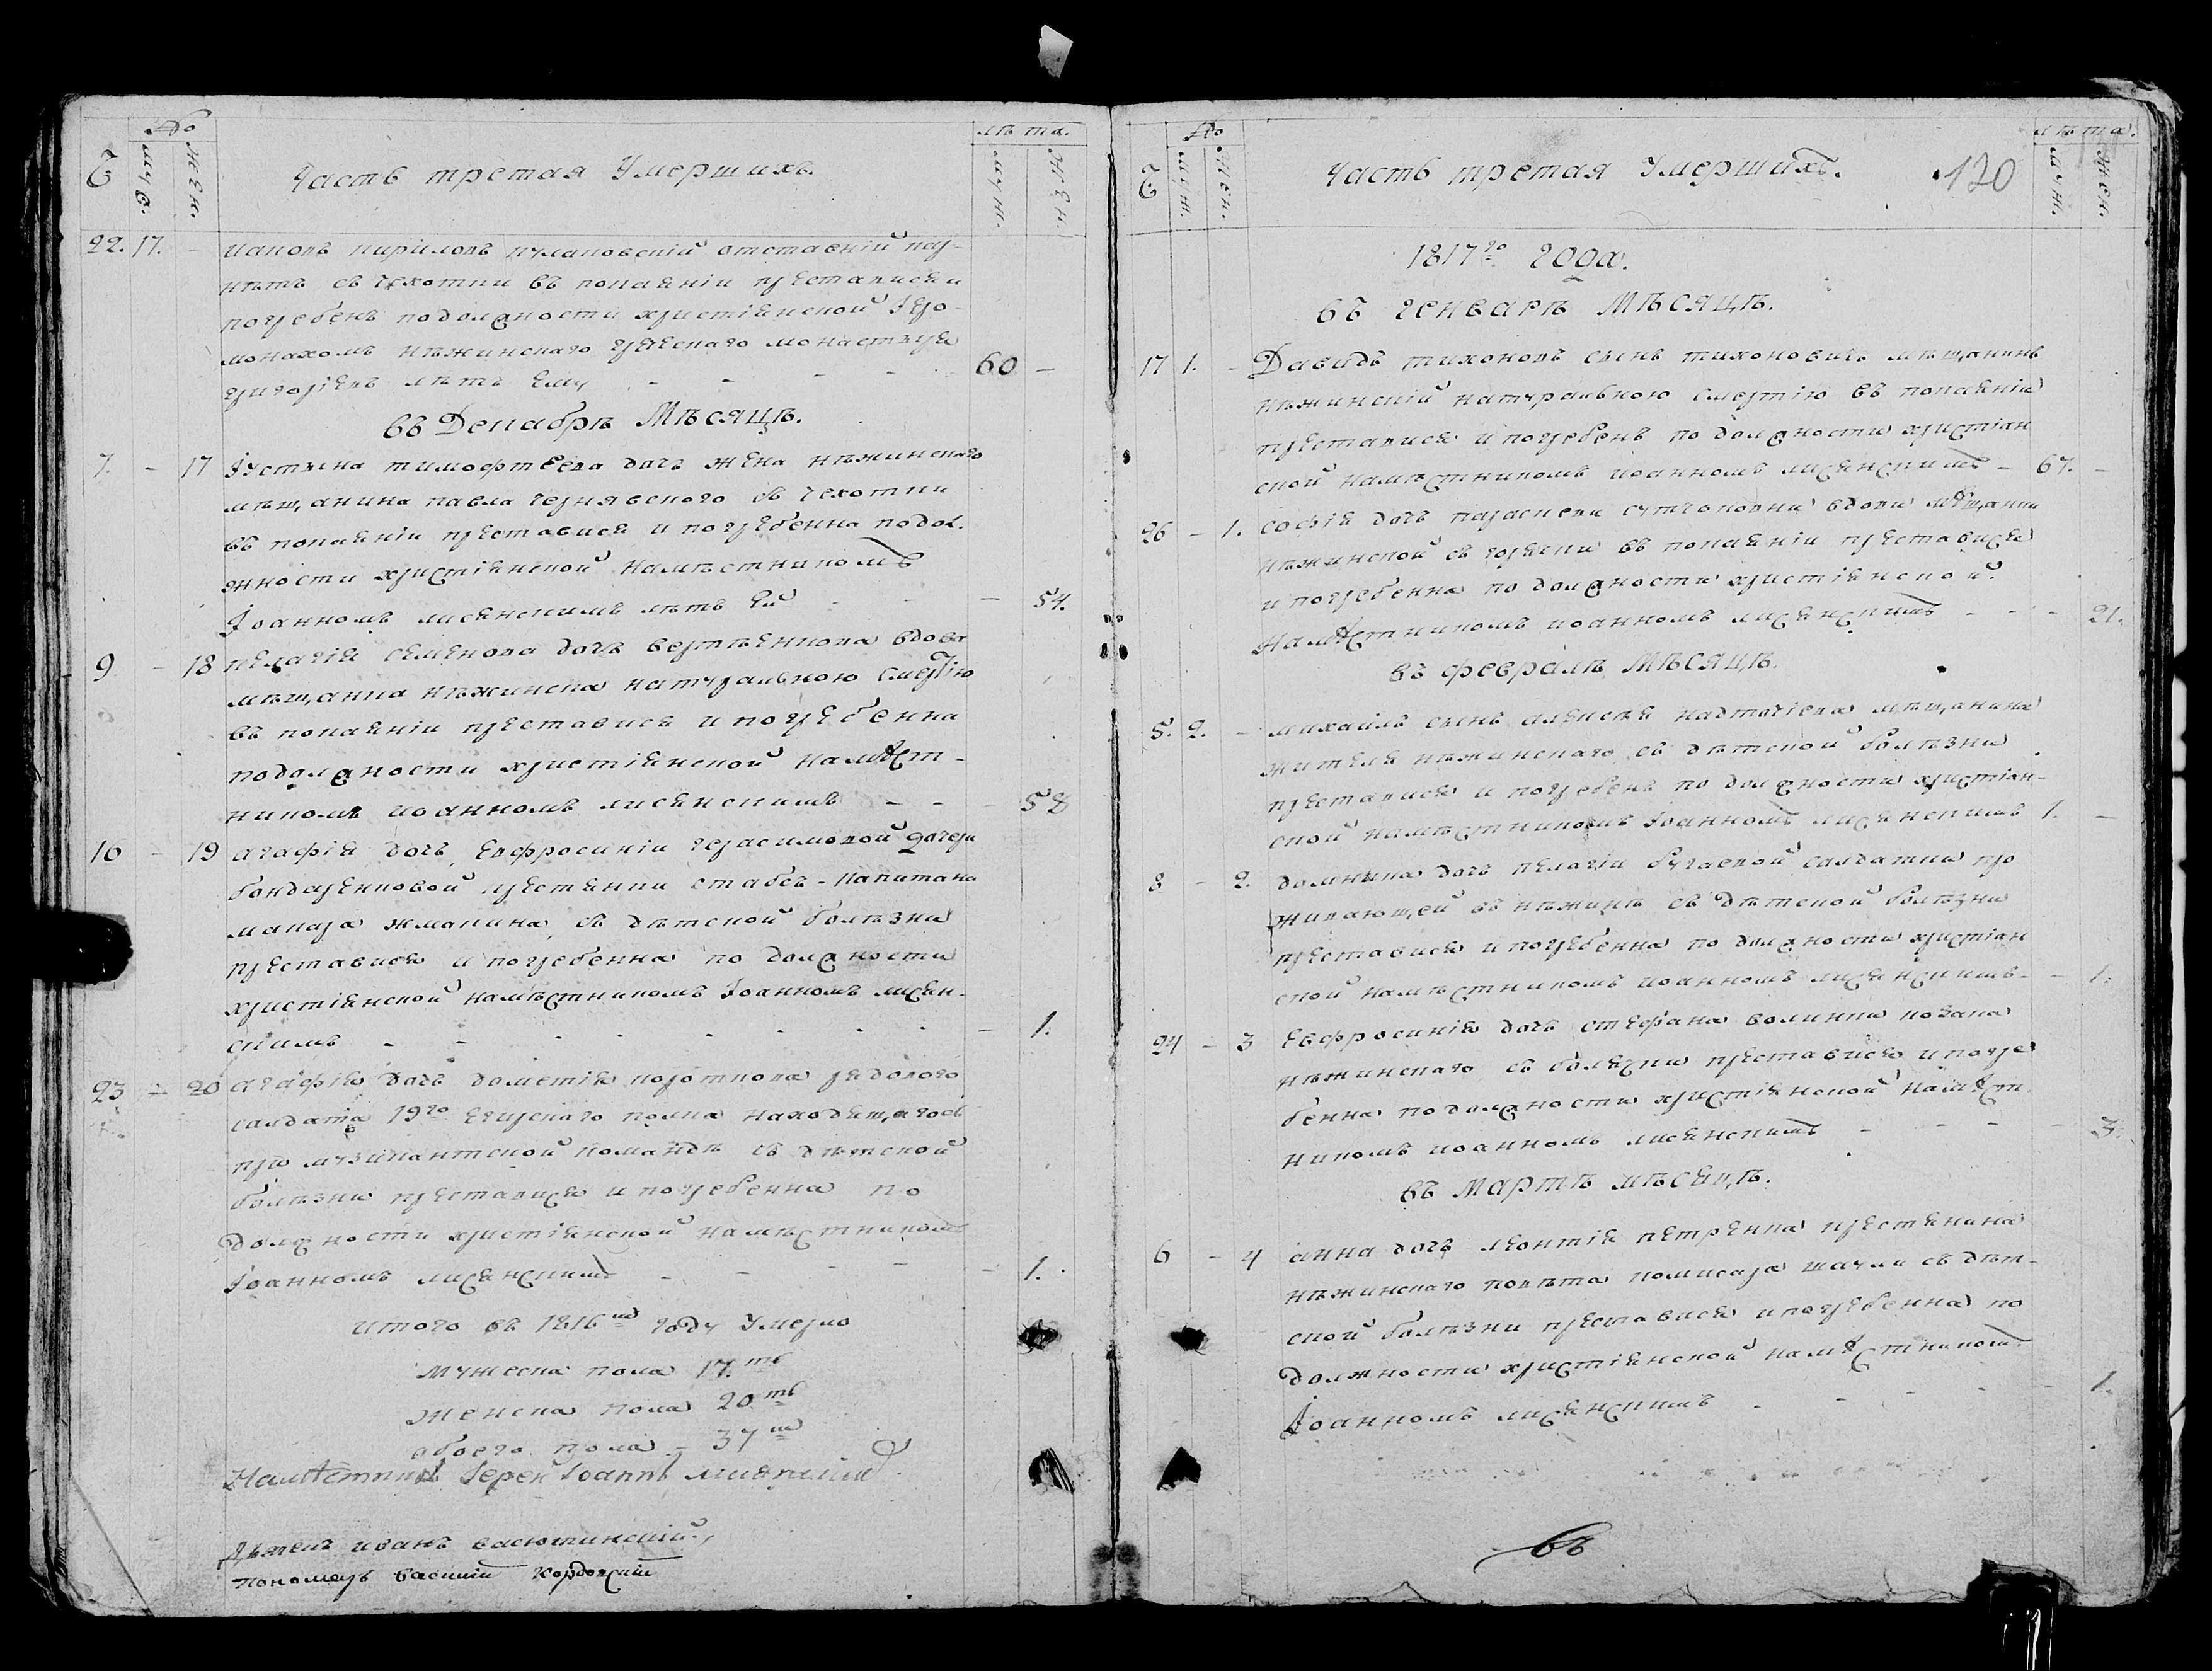 №
лѣта.
Ч
муж.
жен.
Часть третая Умершихъ.
муж.
жен.
22. 17. - Иаковъ Кириловъ отставній
въ покаяніи преставися
погребенъ подолжности христіянской Іеро-
монахомъ нѣжинскаго греческаго монастыря
Григоріемъ лѣтъ ему - - - - 60 -
Въ Декабрѣ Мѣсяцѣ.
7. - 17 Іустина тимофѣева дочь жена нѣжинскаго
мѣщанина павла чернявского съ чехотки
въ покаяніи преставися и погребенна подол-
жности христіянской Намѣстникомъ
Іоанномъ лисянскимъ лѣтъ ей - - - 54.
9. - 18 пелагія семенова дочь вдова
мѣщанка нѣжинска натуральною смертію
въ покаяніи преставися и погребенна
подолжности христіянской намѣст-
никомъ иоанномъ лисянскимъ - - - 58
16 - 19 агафія дочь Евфросиніи герасимовой дочери
бондаренковой крестянки стабсъ-капитана
макара жманина, съ дѣтской болѣзни
преставися и погребенна по должности
христіянской намѣстникомъ Іоанномъ лисян-
скимъ - - - - - - - - 1.
23 - 20 агафія дочь дометія короткова рядового
салдата 19го Егерского полка находящагося
при музикантской командѣ съ дѣтской
болѣзни преставися и погребенна по
должности христіянской намѣстникомъ
Іоанномъ лисянскимъ - - - - - 1.
итого въ 1816м году Умерло
мужеска пола 17.ть
Женска пола 20ть
обоего пола - 37м
Намѣстникъ Іерей Іоаннъ
Дьяконъ иванъ васютинскій,
Пономарь василій Кордовскій
№
лѣта.
Ч
муж.
жен.
Часть третая Умершихъ.
130
муж.
жен.
1817го года.
въ генварѣ Мѣсяцѣ.
17 1. - Давидъ тихоновъ сынъ тихоновичъ мѣщанинъ
нѣжинскій натуральною смертію въ покаяніи
преставися и погребенъ по должности христіан
ской намѣстникомъ иоанномъ лисянскимъ - 67. -
26 - 1. софія дочь параскеви вдови мѣщанки
нѣжинской съ горячки въ покаяніи преставися
и погребенна по должности христіянской
Намѣстникомъ иоанномъ лисянскимъ - - - 21.
въ февралѣ Мѣсяцѣ.
5. 2. - михаилъ сынъ алексѣя мѣщанина
жителя нѣжинскаго съ дѣтской болѣзни
преставися и погребенъ по должности христіян-
ской намѣстникомъ Іоанномъ лисянскимъ 1. -
8 - 2. домника дочь пелагіи бугаевой салдатки про
живающей въ нѣжинѣ съ дѣтской болѣзни
преставися и погребенна по должности христіян
ской намѣстникомъ иоанномъ лисянскимъ - - 1.
24 - 3 Евфросинія дочь стефана волинки козака
нѣжинскаго съ болячки преставися и погре
бенна подолжности христіянской Намѣст
никомъ иоанномъ лисянскимъ - - - - 3.
въ Мартѣ мѣсяцѣ.
6 - 4 анна дочь леонтія петренка крестянина
нѣжинскаго повѣта комисара съ дѣт-
ской болѣзни преставися и погребенна по
должности христіянской намѣстникомъ
Іоанномъ лисянскимъ - - - - 1.
въ